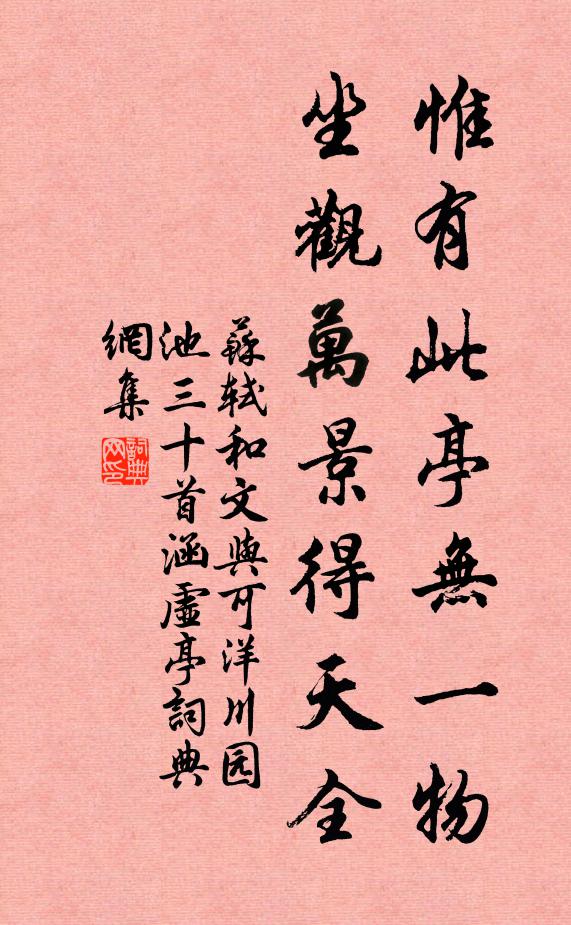 惟有此亭無一物
坐觀萬景得天全
蘇軾和文與可洋川园
池三十首涵虛亭詞典
網集
詞典
网印